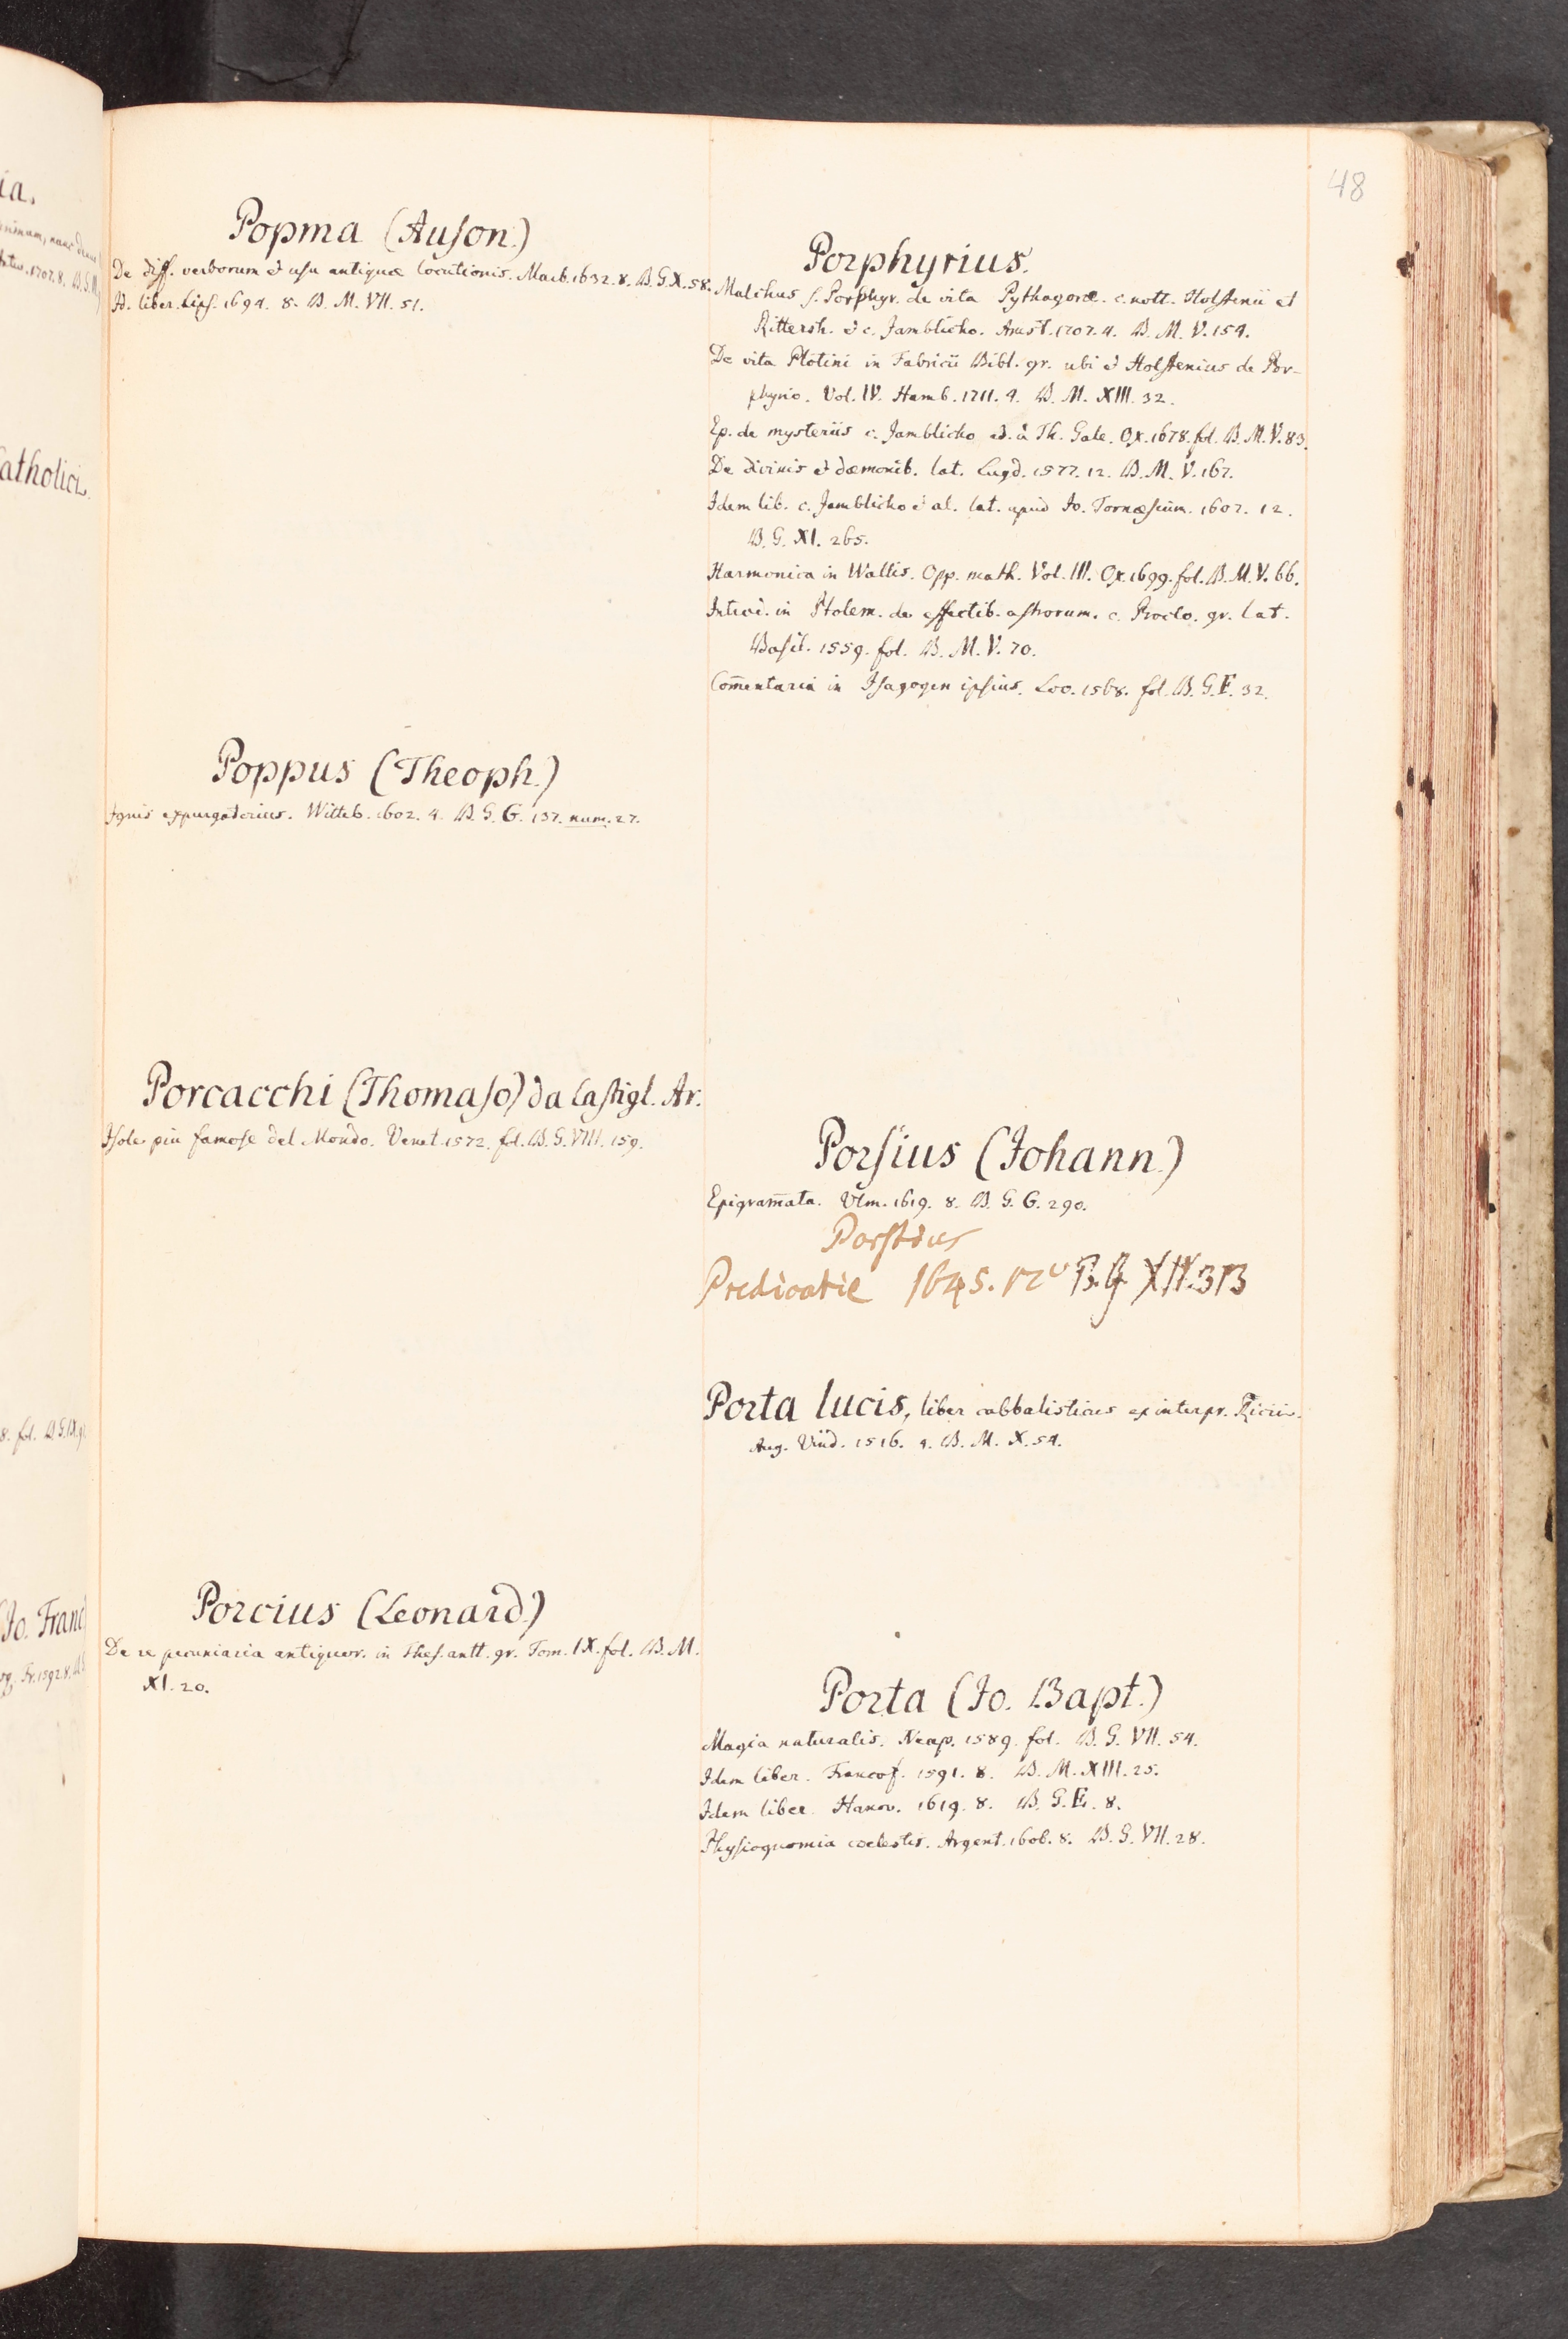 48
Popma (Auson.)
De diff. verborum et usu antiquæ locutionis. Marb. 1632. 8. B. G. X. 58.
Id. liber. Lips. 1694. 8. B. M. VII. 51.
Poppus (Theoph.)
Ignis expurgatorius. Witteb. 1602. 4. B. G. G. 137. num. 27.
Porcacchi (Thomaso) da Castigl. Ar.
Isole piu famose del Mondo. Venet. 1572. fol. B. G. VIII. 159.
Porcius (Leonard.)
De re pecuniaria antiquor. in Thes. antt. gr. Tom. IX. fol. B. M.
XI. 20.
Porphyrius.
Malchus s. Porphyr. de vita Pythagoræ. c. nott. Holstenii et
Rittersh. et c. Jamblicho. Amst. 1707. 4. B. M. V. 154.
De vita Plotini in Fabricii Bibl. gr. ubi et Holstenius de Por-
phyrio. Vol. IV. Hamb. 1711. 4. B. M. XIII. 32.
Ep. de mysteriis c. Jamblicho ed. à Th. Gale. Ox. 1678. fol. B. M. V. 83.
De divinis et dæmonib. lat. Lugd. 1577. 12. B. M. V. 167.
Idem lib. c. Jamblicho et al. lat. apud Jo. Tornæsium. 1607. 12.
B. G. XI. 265.
Harmonica in Wallis. Opp. math. Vol. III. Ox. 1699. fol. B. M. V. 66.
Introd. in Ptolem. de effectib. astrorum. c. Proclo. gr. lat.
Basil. 1559. fol. B. M. V. 70.
Com̄entaria in Isagogen ipsius. Lov. 1568. fol. B. G. F. 32.
Porsius (Johann.)
Epigram̄ata. Ulm. 1619. 8. B. G. G. 290.
Porstius
Predicatie 1645. 12º B. G. XII. 313
Porta lucis, liber cabbalisticus ex interpr. Ricii.
Aug. Vind. 1516. 4. B. M. X. 54.
Porta (Jo. Bapt.)
Magia naturalis. Neap. 1589. fol. B. G. VII. 54.
Idem liber. Francof. 1591. 8. B. M. XIII. 25.
Idem liber. Hanov. 1619. 8. B. G. E. 8.
Physiognomia coelestis. Argent. 1606. 8. B. G. VII. 28.